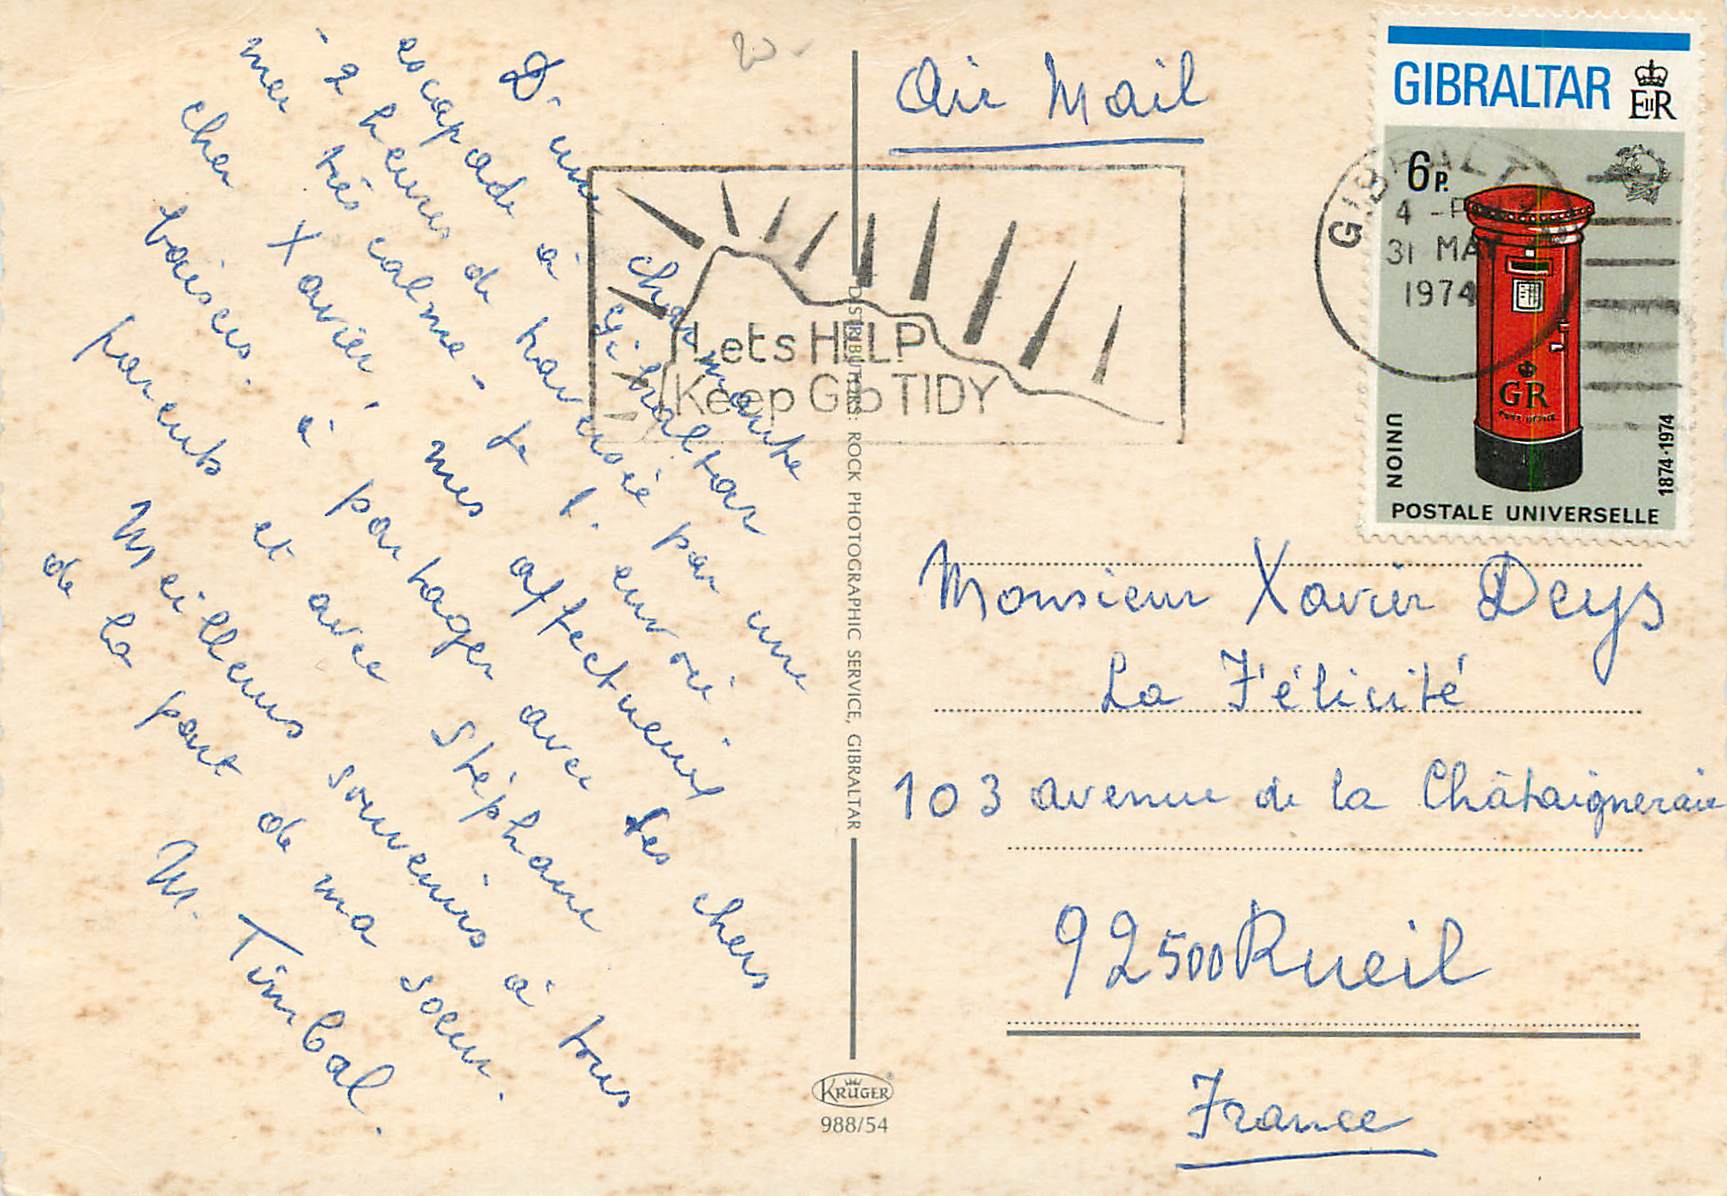 D'une charmante
escapade à gibraltar
- 2 heures de traversée par une
mer très calme - je t'envoie
cher Xavier, mes affectueux
baisers. à partager avec tes chers
parents et avec Stéphane
Meilleurs souvenirs à tous
de la part de ma soeur.
M. Timbal.
Air Mail
GIBRALTAR
EIIR
6P.
GIBRALTAR
4 -P
31 MAY
1974
GR
POST OFFICE
UNION
POSTALE UNIVERSELLE
1874·1974
Lets HELP
Keep Gib TIDY
DISTRIBUTORS: ROCK PHOTOGRAPHIC SERVICE, GIBRALTAR
Monsieur Xavier Deys
La Félicité
103 avenue de la Châtaigneraie
92500 Rueil
France
KRÜGER
988/54